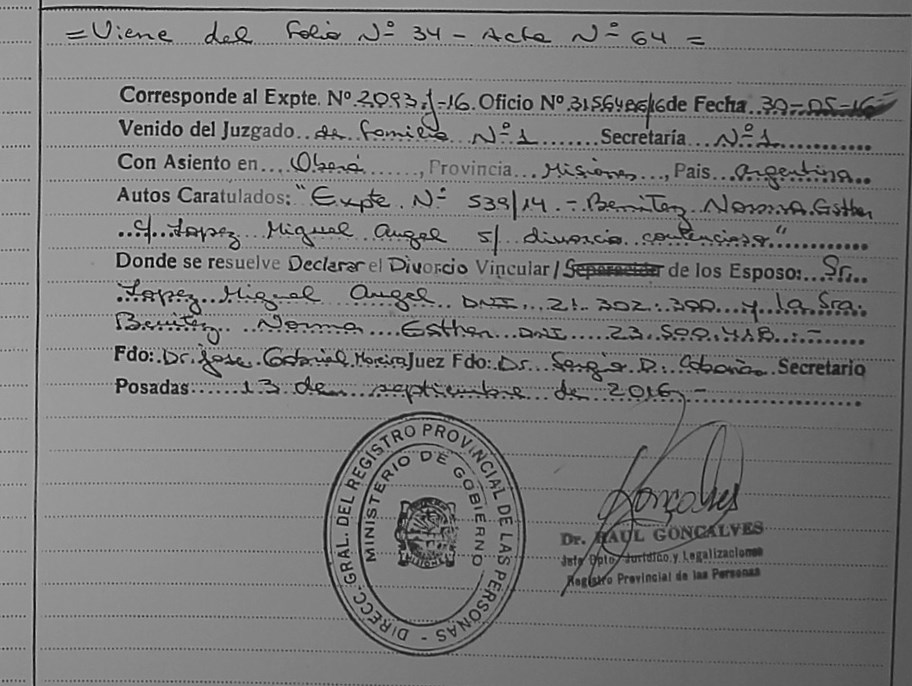 = Viene del Folio Nº 34 - Acta Nº 64 =
Corresponde al Expte. Nº 2093-J-16. Oficio Nº de Fecha 30-05-16
Venido del Juzgado de Familia Nº 1 Secretaría Nº 1
Con Asiento en Oberá, Provincia Misiones, Pais Argentina
Autos Caratulados: "Expte Nº 539/14 - Benitez Norma Esther
c/ Lopez Miguel Angel s/ divorcio contencioso"
Donde se resuelve Declarar el Divorcio Vincular / Separación de los Esposo: Sr.
Lopez Miguel Angel DNI 21.302.390 y la Sra.
Benitez Norma Esther DNI 23.500.418.-
Fdo: Dr. Jose Gabriel Moreira Juez Fdo: Dr. Sergio D. Secretario
Posadas 13 de septiembre de 2016-
DIRECC. GRAL. DEL REGISTRO PROVINCIAL DE LAS PERSONAS -
MINISTERIO DE GOBIERNO
MISIONES
Goncalves
Dr. RAUL GONCALVES
Jefe Dpto. Jurídico y Legalizaciones
Registro Provincial de las Personas